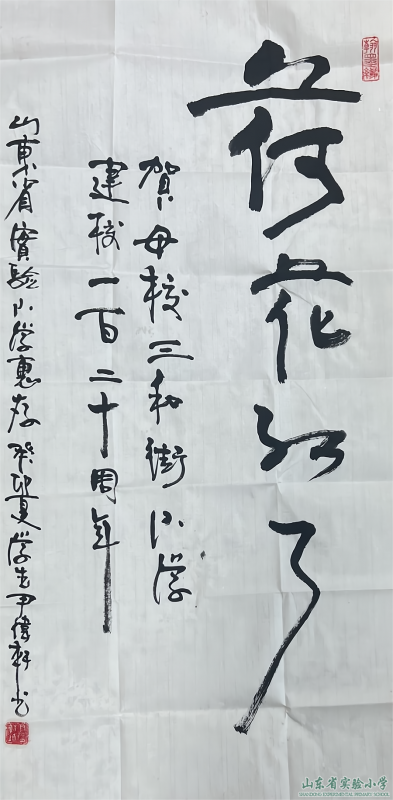 荷花红了
贺母校三和街小学
建校一百二十周年
山东省實验小学惠存 癸卯夏 学生尹伟轩书
翰墨缘
山东省实验小学
SHANDONG EXPERIMENTAL PRIMARY SCHOOL